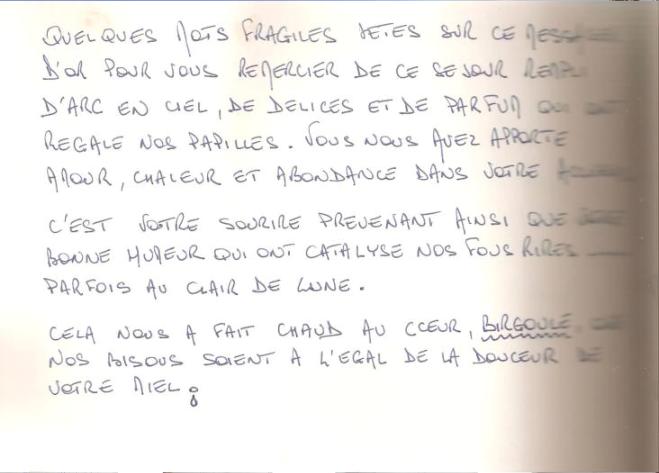 QUELQUES MOTS FRAGILES JETES SUR CE MESSAGE
D'OR POUR VOUS REMERCIER DE CE SEJOUR REMPLI
D'ARC EN CIEL, DE DELICES ET DE PARFUM QUI ONT
REGALE NOS PAPILLES. VOUS NOUS AVEZ APPORTE
AMOUR, CHALEUR ET ABONDANCE DANS VOTRE
C'EST VOTRE SOURIRE PREVENANT AINSI QUE VOTRE
BONNE HUMEUR QUI ONT CATALYSE NOS FOUS RIRES
PARFOIS AU CLAIR DE LUNE.
CELA NOUS A FAIT CHAUD AU CŒUR, BIRGOULE, QUE
NOS BISOUS SOIENT A L'EGAL DE LA DOUCEUR DE
VOTRE MIEL!